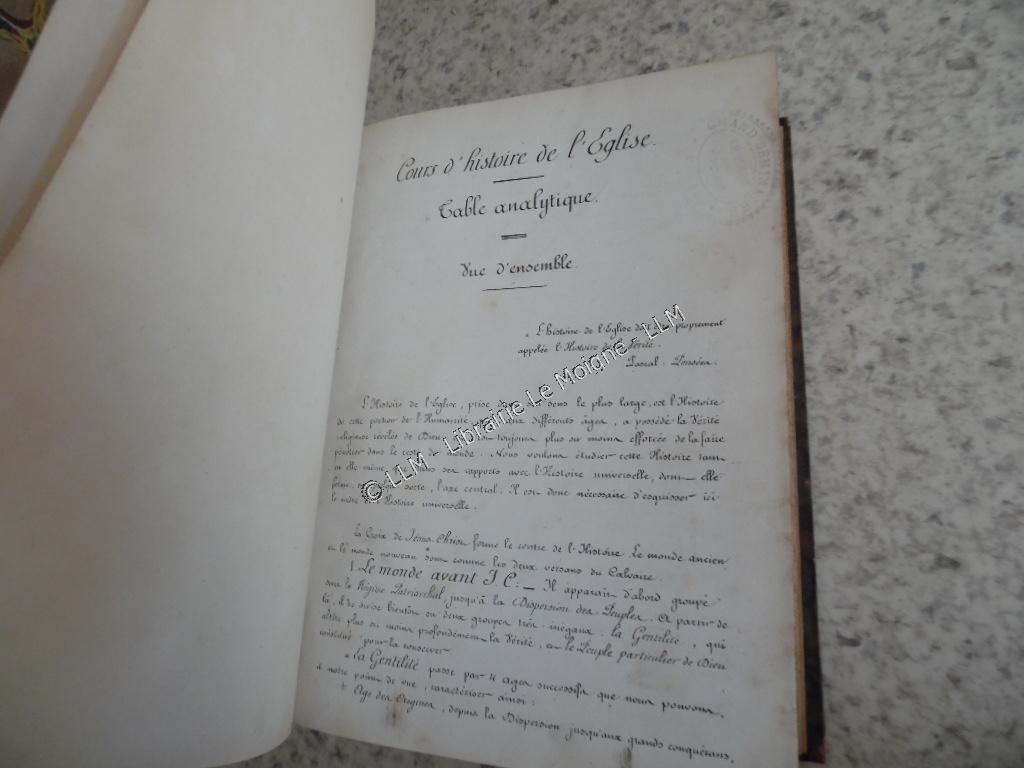 Cours d'histoire de l'Eglise.
Table analytique.
Vue d'ensemble.
« L'histoire de l'Eglise doit être proprement
appelée l'Histoire de la Vérité.
Pascal. Pensées.
L'Histoire de l'Eglise, prise dans son sens le plus large, est l'Histoire
de cette portion de l'Humanité qui, aux différents âges, a possédé la Vérité
religieuse révélée de Dieu toujours plus ou moins efforcée de la faire
pénétrer dans le reste du monde. Nous voulons étudier cette Histoire tant
en elle même, que dans ses rapports avec l'Histoire universelle, dont elle
forme, en quelque sorte, l'axe central. Il est donc nécessaire d'esquisser ici
le cadre de l'Histoire universelle.
La Croix de Jésus-Christ forme le centre de l'Histoire. Le monde ancien
et le monde nouveau sont comme les deux versans du Calvaire.
I. Le monde avant J C: — Il apparait d'abord groupé
sous le Régime Patriarchal, jusqu'à la Dispersion des Peuples. A partir de
là, il se divise bientôt en deux groupes très inégaux: la Gentilité, qui
altère plus ou moins profondément la Vérité, et le Peuple particulier de Dieu
constitué pour la conserver.
La Gentilité passe par 4 âges successifs que nous pouvons,
à notre point de vue, caractériser ainsi:
Age des Origines, depuis la Dispersion jusqu'aux grands conquérans,
© LLM - Librairie Le Moigne - LLM